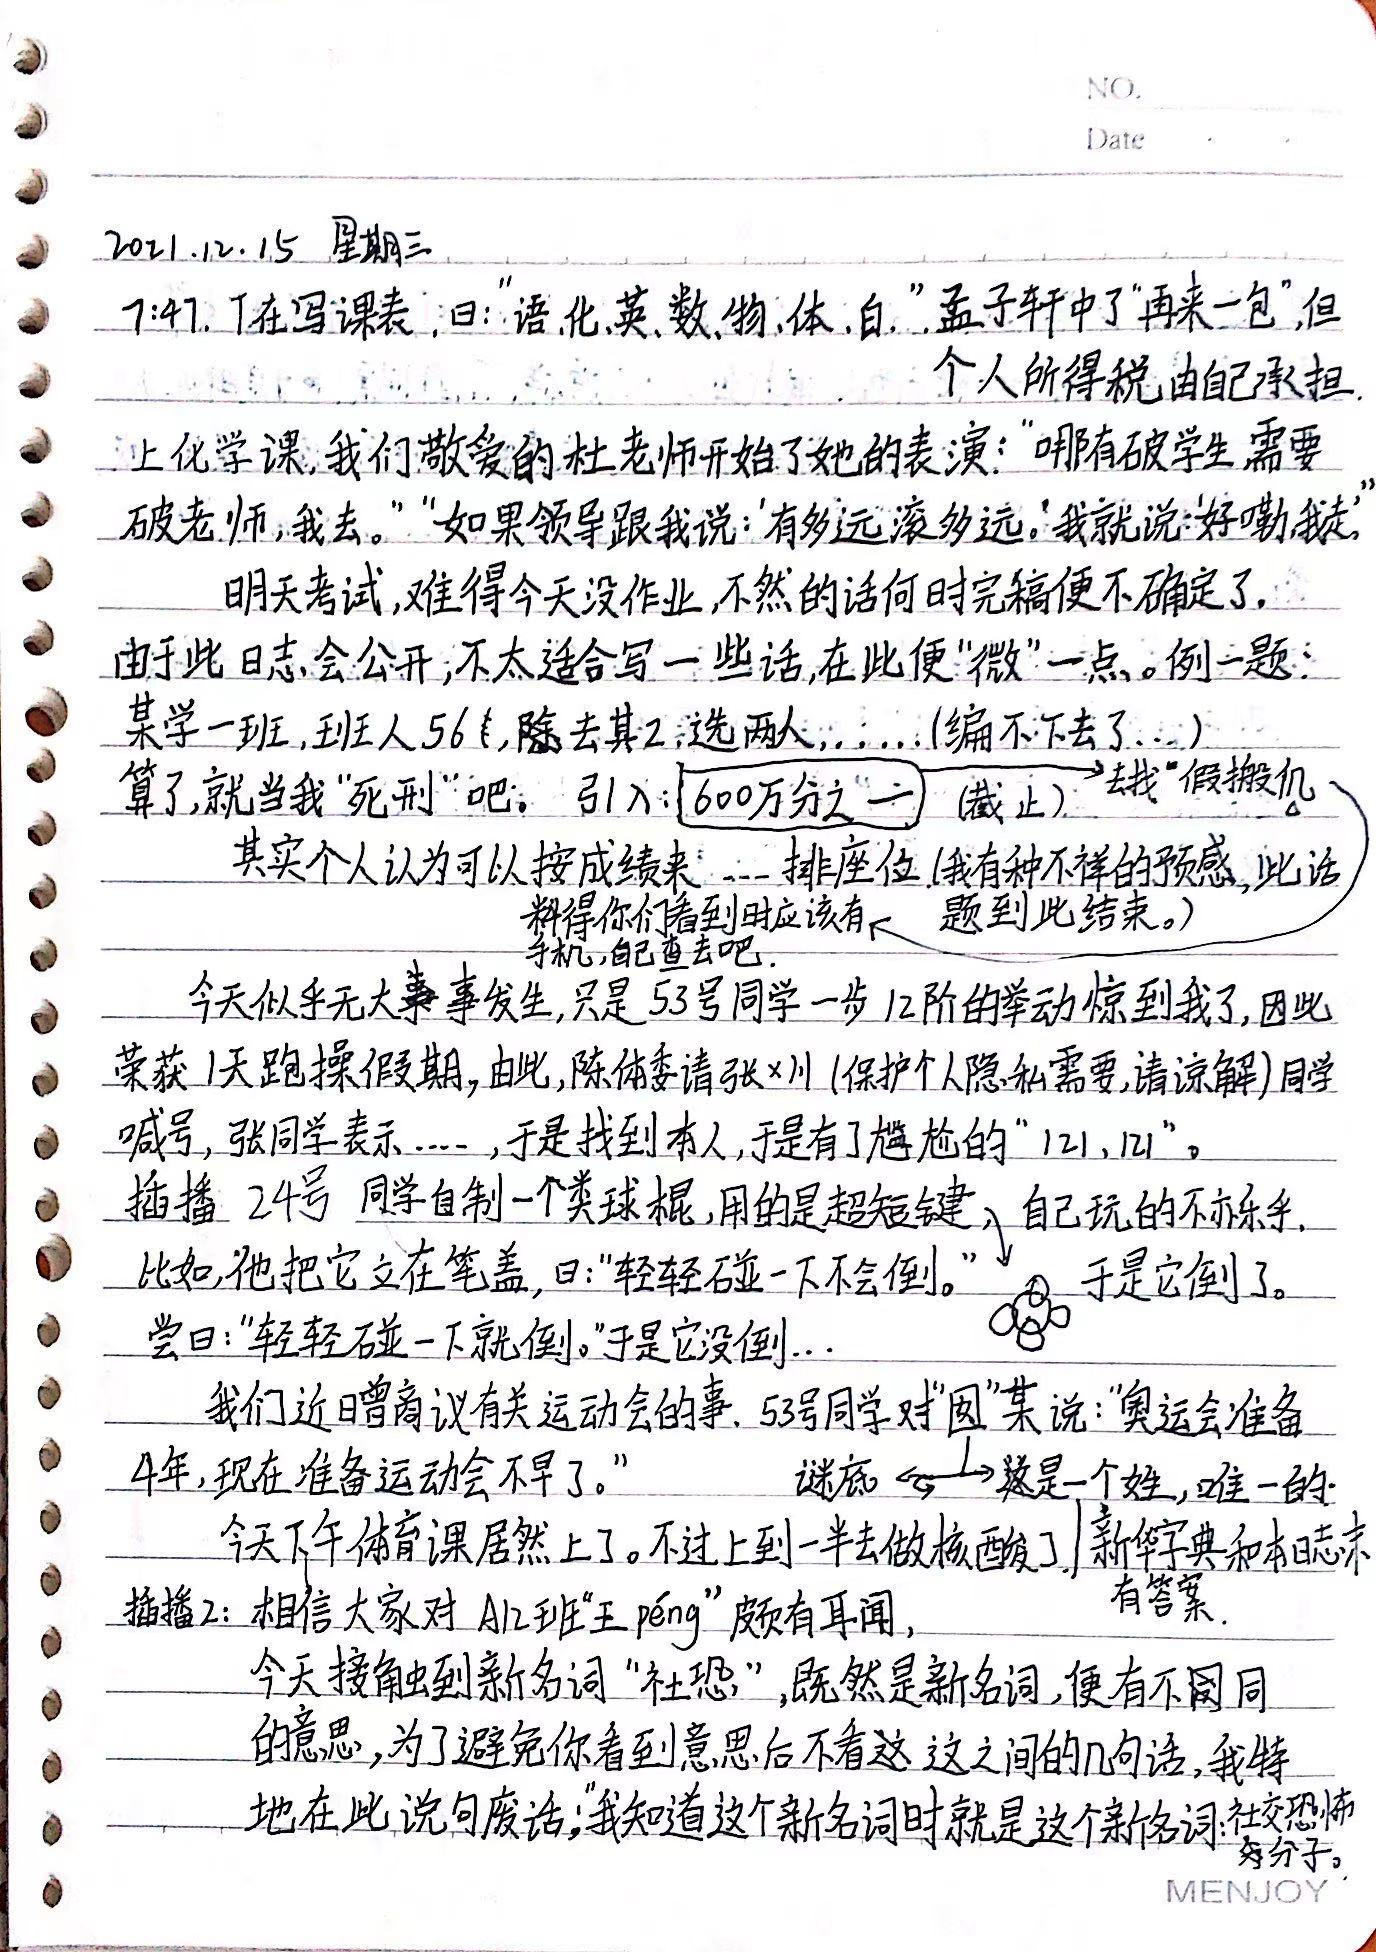 NO.
Date
2021.12.15 星期三
7:47. T在写课表,曰:“语、化、英、数、物、体、自.”孟子轩中了“再来一包”,但
个人所得税由自己承担.
上化学课,我们敬爱的杜老师开始了她的表演:“哪有破学生,需要
破老师,我去。”“如果领导跟我说:‘有多远滚多远。’我就说:‘好嘞,我走.’”
明天考试,难得今天没作业,不然的话何时完稿便不确定了.
由于此日志会公开,不太适合写一些话,在此便“微”一点。例一题:
某学一班,班人56,除去其2,选两人,......(编不下去了...)
算了,就当我“死刑”吧. 引入:600万分之一 (截止) 去找“假搬机
其实个人认为可以按成绩来....排座位(我有种不祥的预感,此话
题到此结束。)
料得你们看到时应该有
手机,自己查去吧.
今天似乎无大事发生,只是53号同学一步12阶的举动惊到我了,因此
荣获1天跑操假期,由此,陈体委请张×川(保护个人隐私需要,请谅解)同学
喊号,张同学表示.....,于是找到本人,于是有了尴尬的“121、121”。
插播 24号 同学自制一个类球棍,用的是超短键,自己玩的不亦乐乎.
比如,他把它立在笔盖,曰:“轻轻碰一下不会倒。” 于是它倒了。
尝曰:“轻轻碰一下就倒。”于是它没倒...
我们近日曾商议有关运动会的事.53号同学对“囡”某说:“奥运会准备
4年,现在准备运动会不早了。” 谜底 这是一个姓,唯一的
今天下午体育课居然上了。不过上到一半去做核酸了 新华字典和本日志末
有答案.
插播2: 相信大家对A12班“王péng”颇有耳闻,
今天接触到新名词“社恐”,既然是新名词,便有不同
的意思,为了避免你看到意思后不看这之间的几句话,我特
地在此说句废话:“我知道这个新名词时就是这个新名词:社交恐怖
分子。
MENJOY